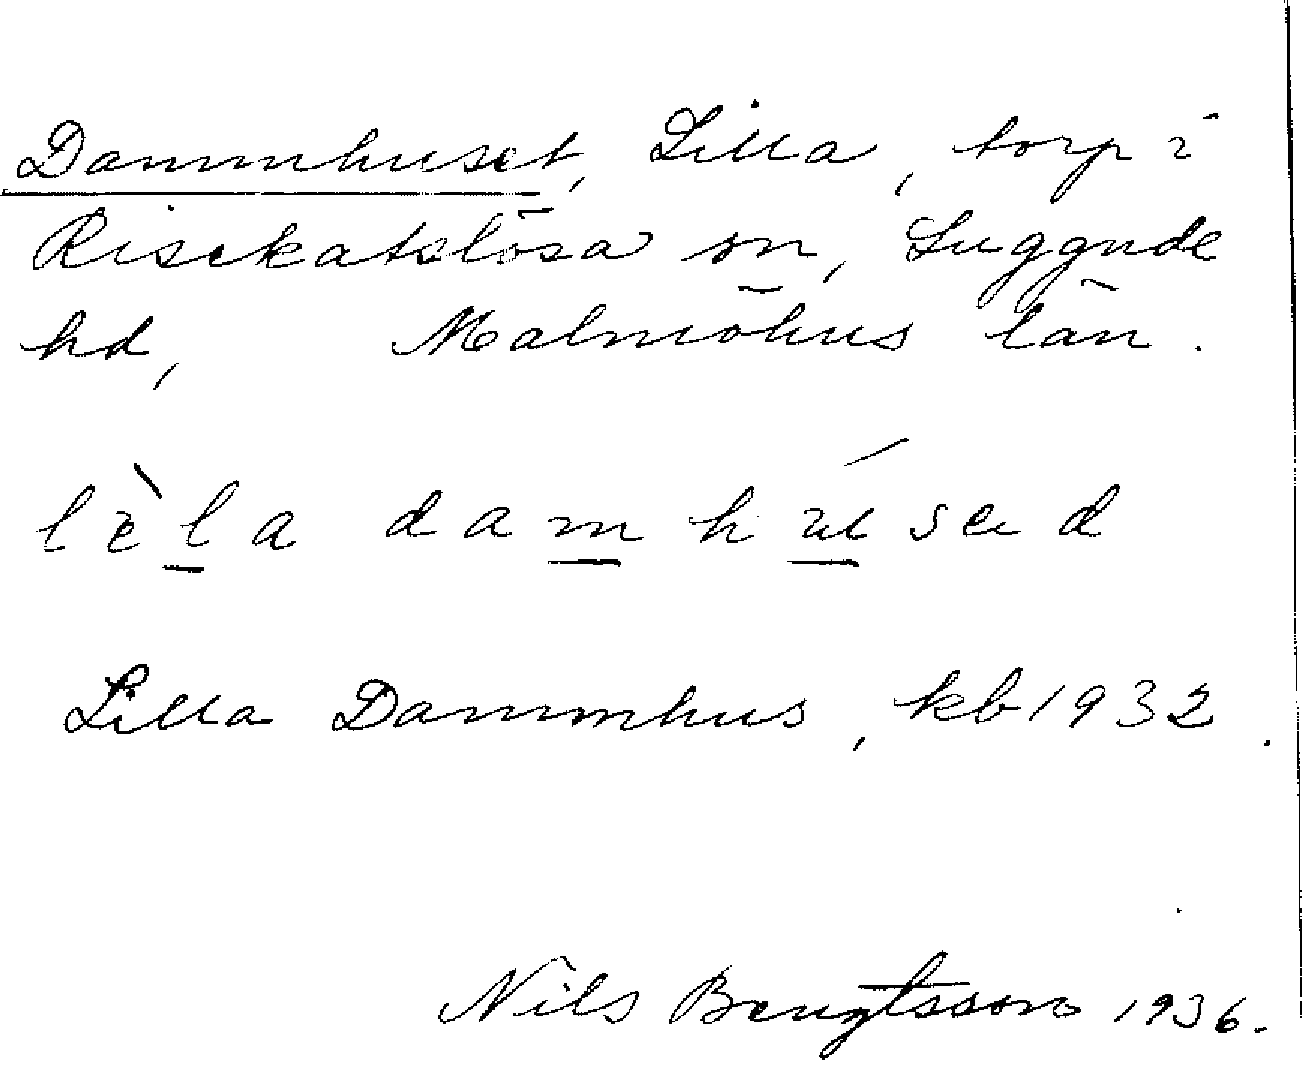 Dammhuset, Lilla, torp i
Risekatslösa sn, Luggude
hd, Malmöhus län.
lèla damhúsed
Lilla Dammhus, kb 1932.
Nils Bengtsson 1936.